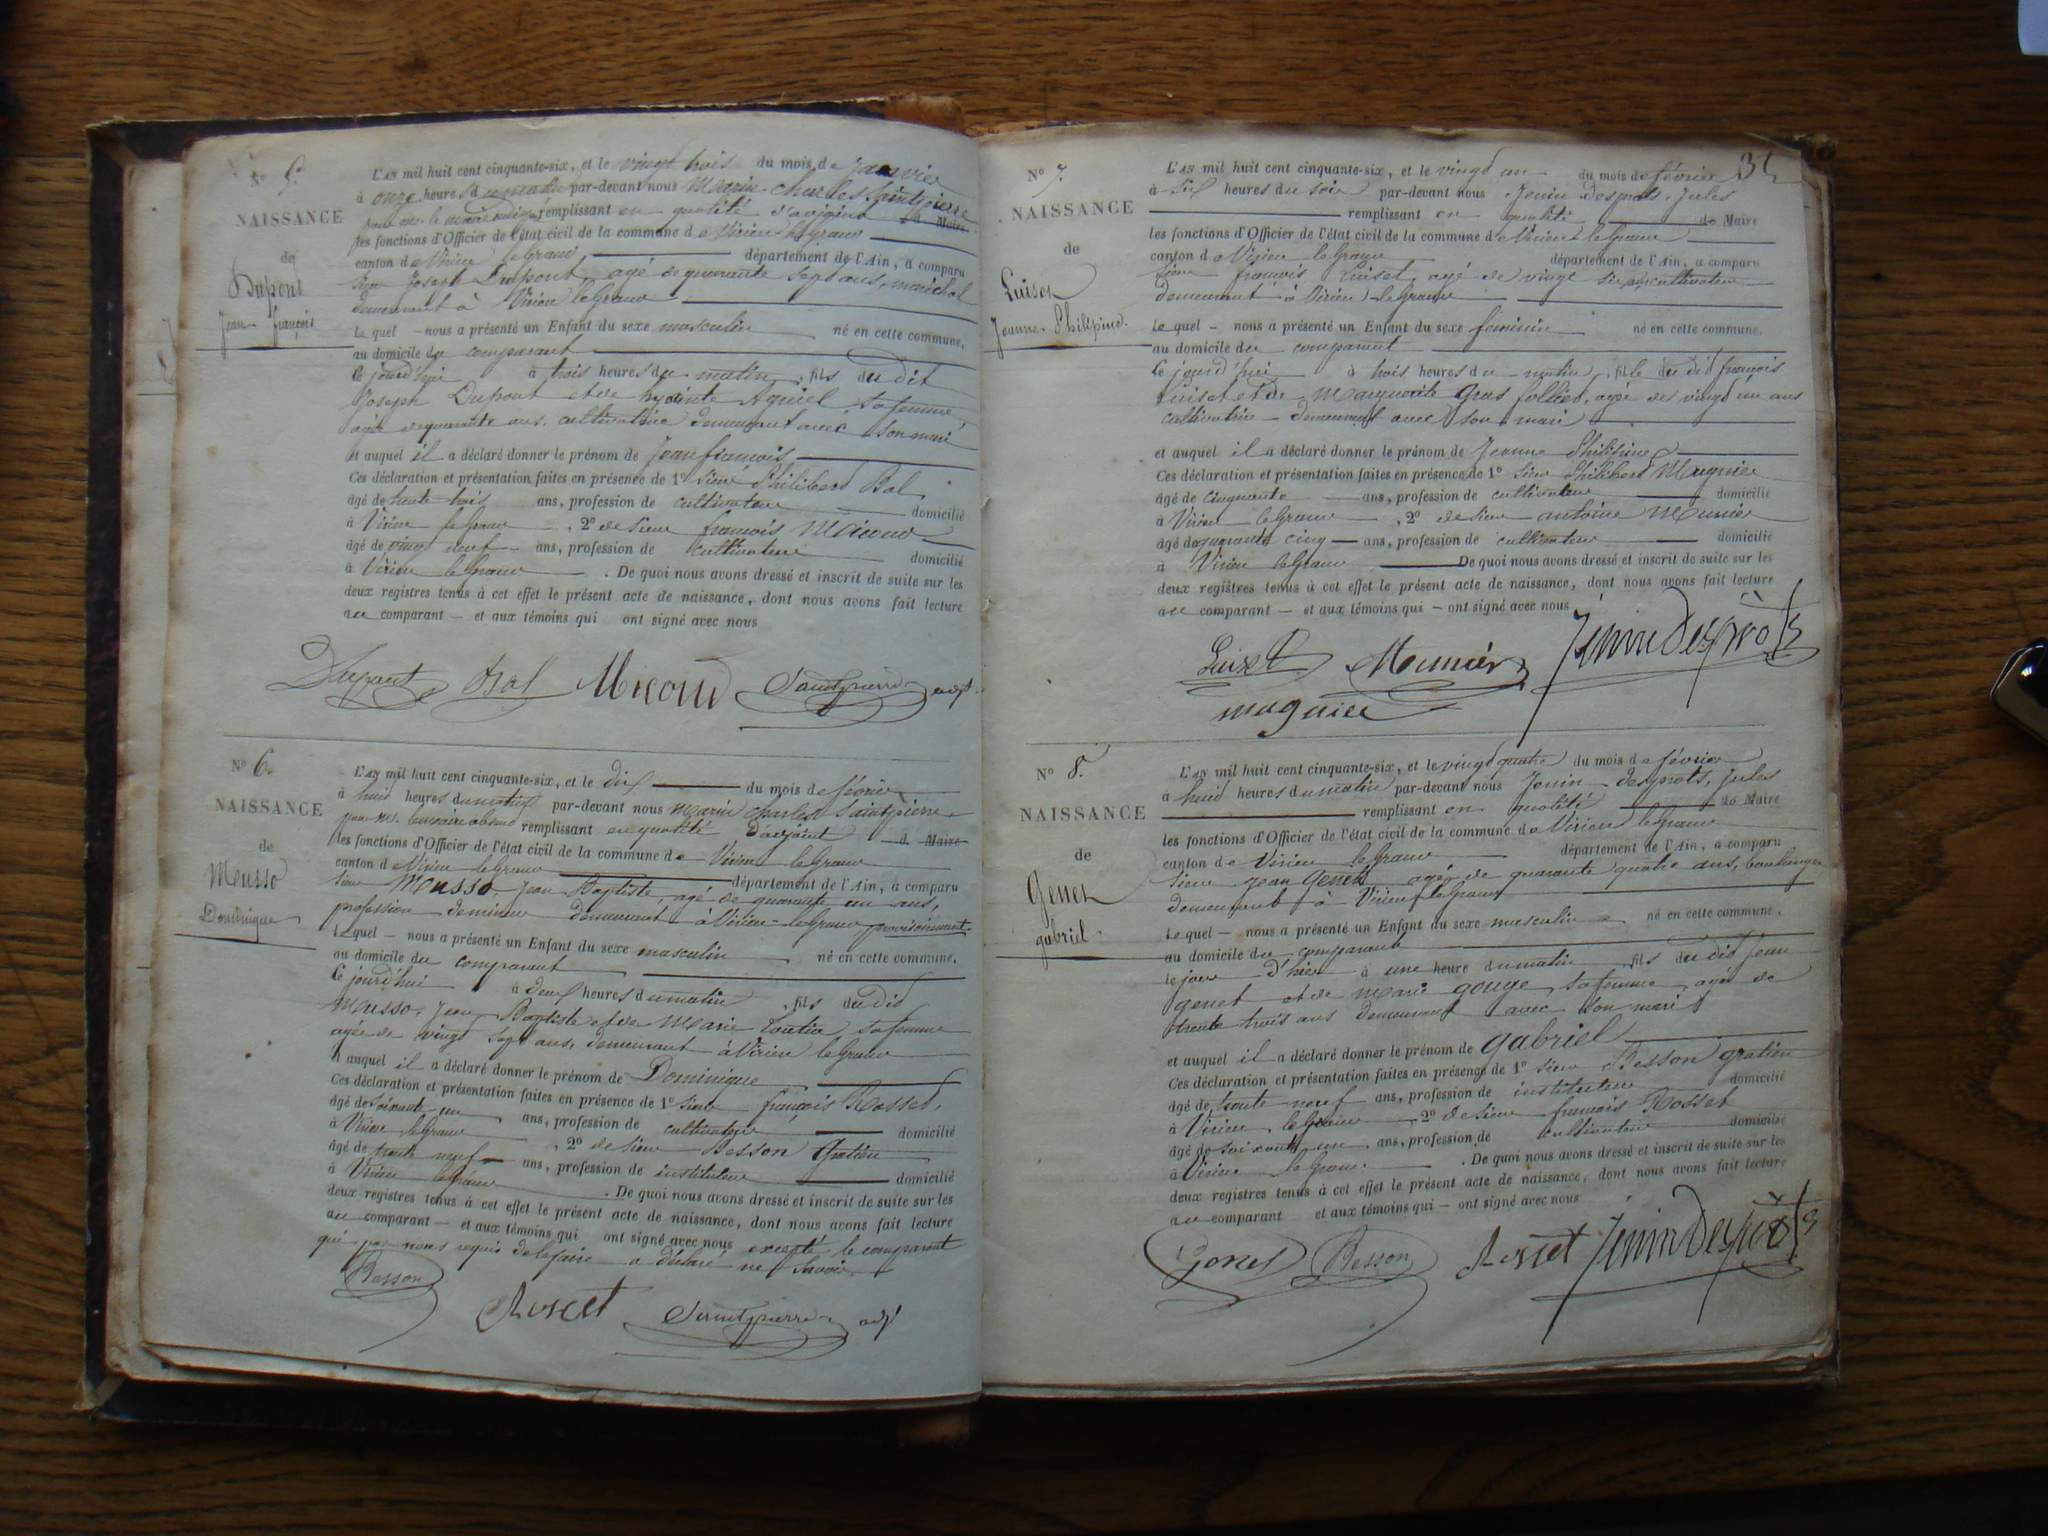 N° 5.
NAISSANCE
de
Dupont
Jean françois
L'AN mil huit cent cinquante-six, et le vingt trois du mois de Janvier
à onze heures du matin par-devant nous Marin Charles Saintpierre
remplissant en qualité d'adjoint de Maire
les fonctions d'Officier de l'état civil de la commune de Virieu le Grand
canton de Virieu le Grand département de l'Ain, a comparu
sieur Joseph Dupont, agé de quarante sept ans, maréchal
demeurant à Virieu le Grand
Lequel nous a présenté un Enfant du sexe masculin né en cette commune,
au domicile du comparant
ce jourd'hui à trois heures du matin, fils du dit
Joseph Dupont et de hyacinte Aguiel, sa femme
agée de quarante ans, cultivatrice demeurant avec son mari
et auquel il a déclaré donner le prénom de Jean françois
Ces déclaration et présentation faites en présence de 1° sieur Philibert Bal
âgé de trente trois ans, profession de cultivateur domicilié
à Virieu le Grand, 2° de sieur françois Micoud
âgé de vingt neuf ans, profession de cultivateur domicilié
à Virieu le Grand. De quoi nous avons dressé et inscrit de suite sur les
deux registres tenus à cet effet le présent acte de naissance, dont nous avons fait lecture
au comparant et aux témoins qui ont signé avec nous
Dupont Bal Micoud Saintpierre adjt
N° 6.
NAISSANCE
de
Musso
Dominique
L'AN mil huit cent cinquante-six, et le dix du mois de février
à huit heures du matin par-devant nous Marin Charles Saintpierre
pour mr. le maire absent remplissant en qualité d'adjoint de Maire
les fonctions d'Officier de l'état civil de la commune de Virieu le Grand
canton de Virieu le Grand département de l'Ain, a comparu
sieur Musso Jean Baptiste, agé de quarante un ans,
profession de mineur demeurant à Virieu-le Grand provisoirement
Lequel nous a présenté un Enfant du sexe masculin né en cette commune,
au domicile du comparant
ce jourd'hui à deux heures du matin, fils du dit
Musso, Jean Baptiste et de Marie sa femme
agée de vingt sept ans, demeurant à Virieu le Grand
et auquel il a déclaré donner le prénom de Dominique
Ces déclaration et présentation faites en présence de 1° sieur françois Rosset,
âgé de soixante un ans, profession de cultivateur domicilié
à Virieu le Grand, 2° de sieur Besson Gratien
âgé de trente neuf ans, profession de instituteur domicilié
à Virieu le Grand. De quoi nous avons dressé et inscrit de suite sur les
deux registres tenus à cet effet le présent acte de naissance, dont nous avons fait lecture
au comparant et aux témoins qui ont signé avec nous excepté le comparant
qui par nous requis de le faire a déclaré ne savoir
Besson Rosset Saintpierre adjt
N° 7.
NAISSANCE
de
Luiset
Jeanne Philipine
L'AN mil huit cent cinquante-six, et le vingt un du mois de février
à six heures du soir par-devant nous Jenin Desprots, Jules
remplissant en qualité de Maire
les fonctions d'Officier de l'état civil de la commune de Virieu le Grand
canton de Virieu le Grand département de l'Ain, a comparu
sieur françois Luiset, agé de vingt six ans cultivateur
demeurant à Virieu-le Grand
Lequel nous a présenté un Enfant du sexe féminin né en cette commune,
au domicile du comparant
ce jourd'hui à trois heures du matin, fille du dit françois
Luiset et de Marguerite Gros follliet, agée de vingt un ans
cultivatrice demeurant avec son mari
et auquel il a déclaré donner le prénom de Jeanne Philipine
Ces déclaration et présentation faites en présence de 1° sieur Philibert Magnier
âgé de cinquante ans, profession de cultivateur domicilié
à Virieu le Grand, 2° de sieur antoine Meunier
âgé de quarante cinq ans, profession de cultivateur domicilié
à Virieu le Grand De quoi nous avons dressé et inscrit de suite sur les
deux registres tenus à cet effet le présent acte de naissance, dont nous avons fait lecture
au comparant et aux témoins qui ont signé avec nous
Luiset Meunier Jenin Desprots
magnier
N° 8.
NAISSANCE
de
Genet
gabriel
L'AN mil huit cent cinquante-six, et le vingt quatre du mois de février
à huit heures du matin par-devant nous Jenin Desprots, jules
remplissant en qualité de Maire
les fonctions d'Officier de l'état civil de la commune de Virieu le Grand
canton de Virieu le Grand département de l'Ain, a comparu
sieur jean Genet agé de quarante quatre ans, boulanger
demeurant à Virieu le Grand
Lequel nous a présenté un Enfant du sexe masculin né en cette commune,
au domicile du comparant
le jour d'hier à une heure du matin, fils du dit Jean
genet et de Marie gouge sa femme, agée de
trente trois ans demeurant avec son mari
et auquel il a déclaré donner le prénom de gabriel
Ces déclaration et présentation faites en présence de 1° sieur Besson gratien
âgé de trente neuf ans, profession de instituteur domicilié
à Virieu le Grand, 2° de sieur françois Rosset
âgé de soixante un ans, profession de cultivateur domicilié
à Virieu le Grand. De quoi nous avons dressé et inscrit de suite sur les
deux registres tenus à cet effet le présent acte de naissance, dont nous avons fait lecture
au comparant et aux témoins qui ont signé avec nous
Genet Besson Rosset Jenin Desprots